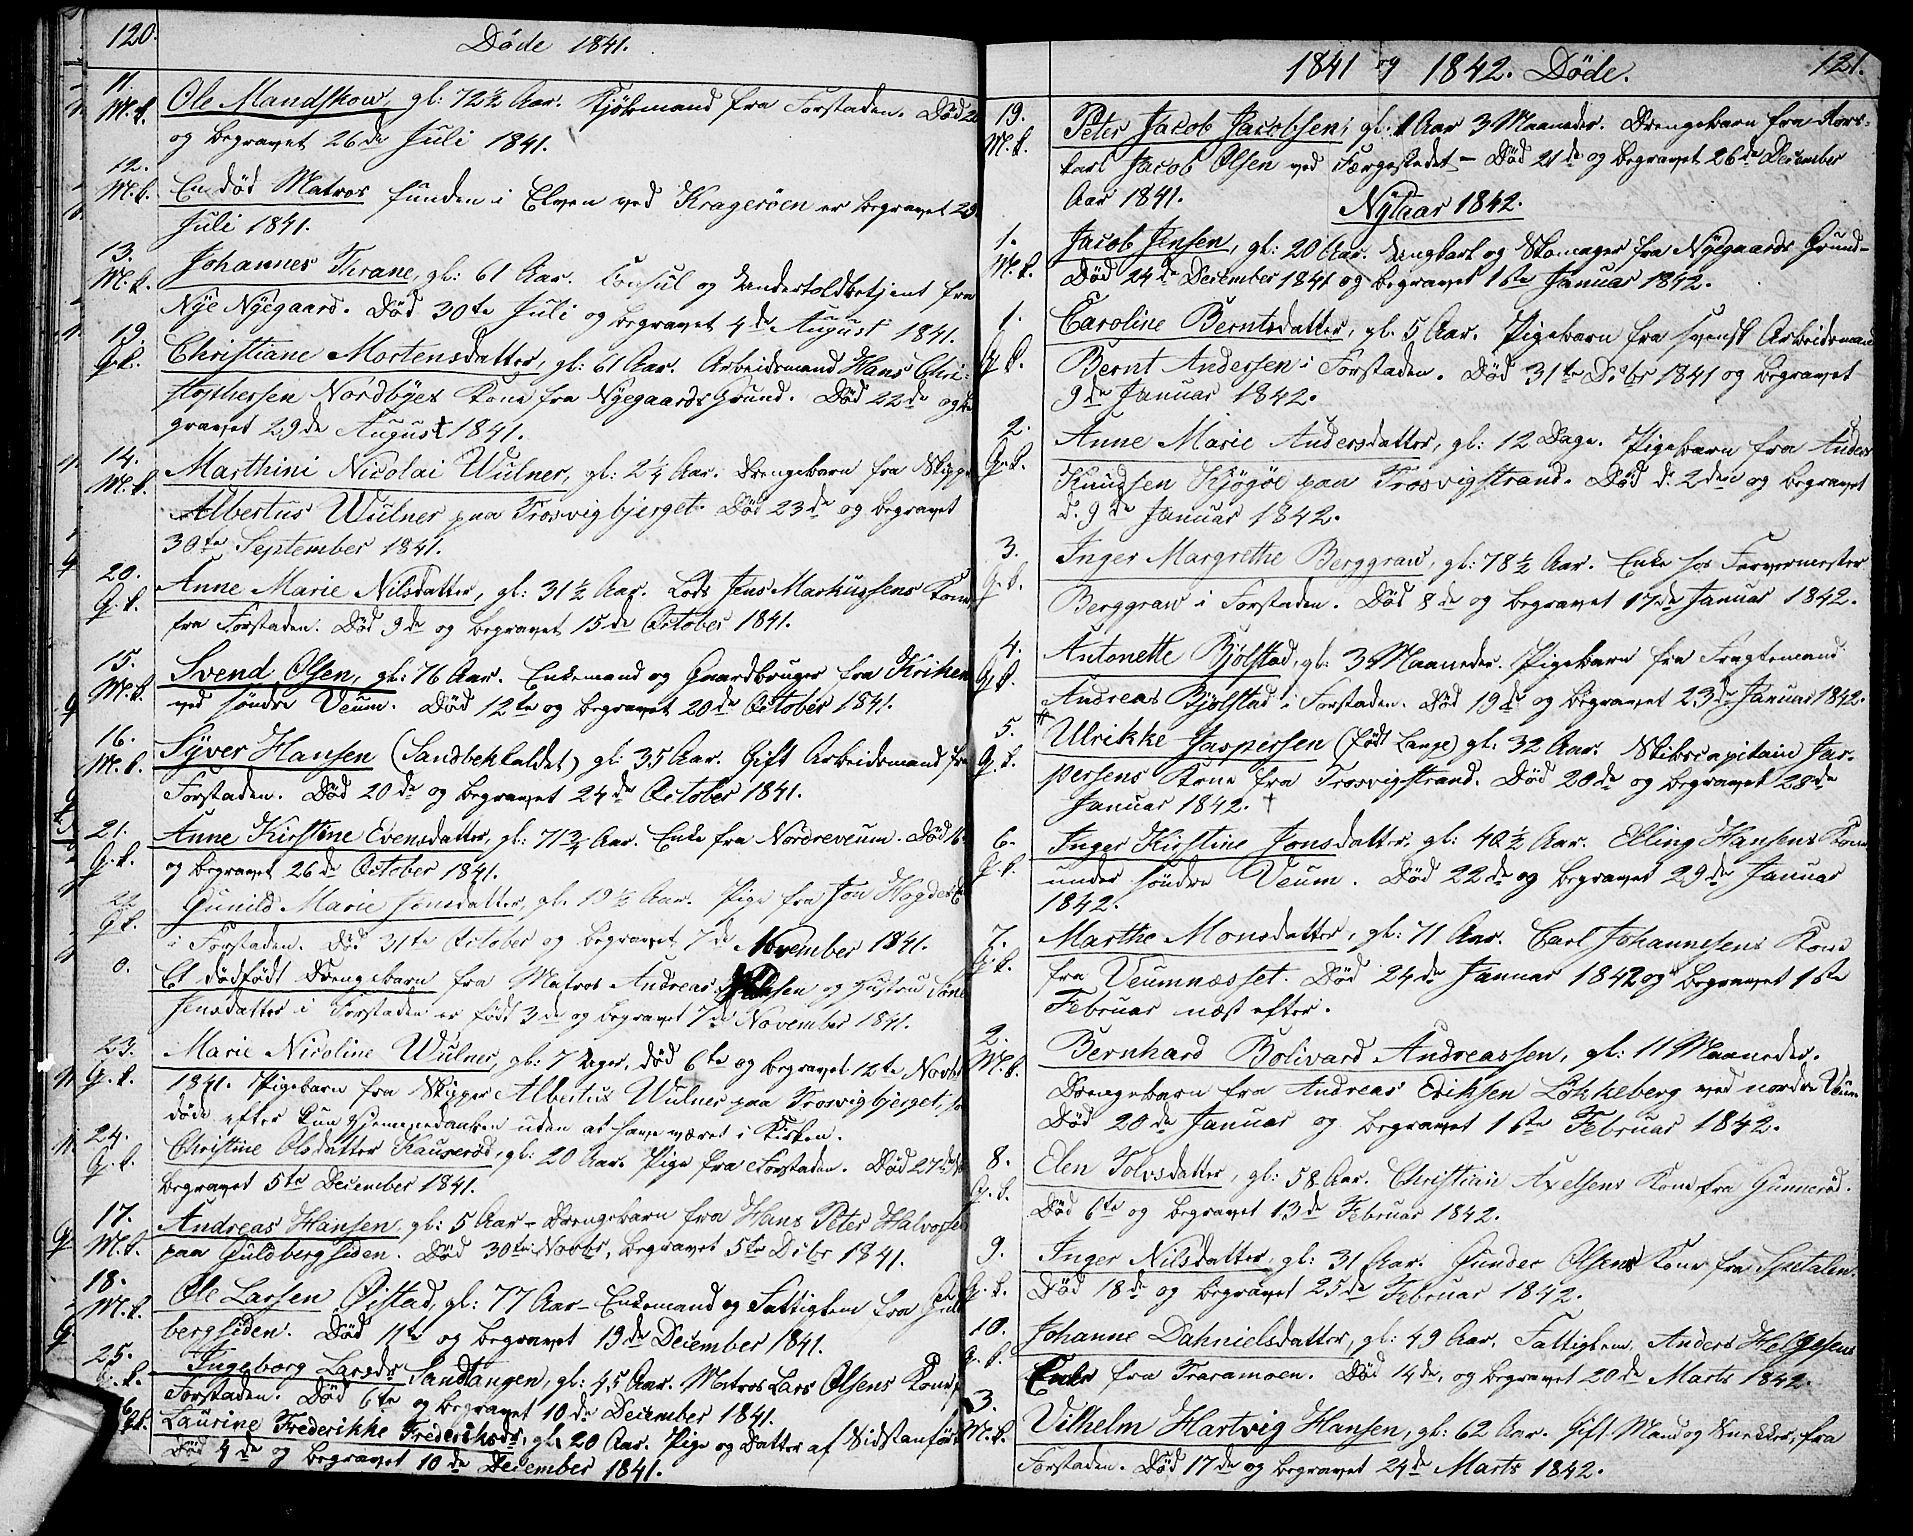 120.
Døde 1841.
11. M.k. Ole Mandskow, gl: 72½ Aar. Kjøbmand fra Forstaden. Død 20
og begravet 26de Juli 1841.
12. M.k. En død Matros funden i Elven ved Kragerøen er begravet 29
Juli 1841.
13. M.k. Johannes Thrane, gl: 61 Aar. Consul og Undertoldbetjent fra
Nye Nyegaard. Død 30te Juli og begravet 4de August 1841.
19. Q.k. Christiane Mortensdatter, gl: 61 Aar. Arbeidsmand Hans Chri-
stophersen Nordbyes Kone fra Nyegaards Grund. Død 22de og be
gravet 29de August 1841.
14. M.k. Marthini Nicolai Wulner, gl: 2¼ Aar. Drengebarn fra Skipper
Albertus Wulner paa Trosvigbjerget. Død 23de og begravet
30te September 1841.
20. Q.k. Anne Marie Nilsdatter, gl: 31½ Aar. Lods Jens Markussens Kone
fra Forstaden. Død 9de og begravet 15de October 1841.
15. M.k. Svend Olsen, gl: 76 Aar. Enkemand og Gaardbruger fra Krihen
ved søndre Veum. Død 12te og begravet 20de October 1841.
16. M.k. Syver Hansen (Sandbek kaldet) gl: 35 Aar. Gift Arbeidsmand fra
Forstaden. Død 20de og begravet 24de October 1841.
21. Q.k. Anne Kirstine Evensdatter, gl: 71¾ Aar. Enke fra Nordreveum. Død 16
og begravet 26de October 1841.
22. Q.k. Gunild Marie Jonsdatter, gl: 19½ Aar. Pige fra Jon
i Forstaden. Død 31te October og begravet 7de November 1841.
0. Et dødfødt Drengebarn fra Matros Andreas og Hustru
Jensdatter i Forstaden er født 3de og begravet 7de November 1841.
23. Q.k. Marie Nicoline Wulner, gl: 7 Dager, død 6te og begravet 12te Novbr
1841. Pigebarn fra Skipper Albertus Wulner paa Trosvigbjerget,
døde efter kun Hjemmedaaben uden at have været i Kirken.
24. Q.k. Christine Olsdatter Kauserød, gl: 20 Aar. Pige fra Forstaden. Død 27de
begravet 5te December 1841.
17. M.k. Andreas Hansen, gl: 5 Aar – Drengebarn fra Hans Peter Halvorsen
paa Guldbergsiden. Død 30te Novbr, begravet 5te Dcbr 1841.
18. M.k. Ole Larsen Øistad, gl: 77 Aar – Enkemand og Fattiglem fra Guld
bergsiden. Død 11te og begravet 19de December 1841.
25. Q.k. Ingeborg Larsdr Sandtangen, gl: 45 Aar. Matros Lars Olsens Kone
Forstaden. Død 6te og begravet 10de December 1841.
26. Q.k. Laurine Frederikke Frederiksdr, gl. 20 Aar. Pige og Datter af
Død 4de og begravet 10de December 1841.
1841 og 1842. Døde.
121.
19. M.k. Peter Jacob Jacobsen, gl: 1 Aar 3 Maaneder. Drengebarn fra Rors-
karl Jacob Olsen ved Færgestedet – Død 21de og begravet 26de December
Aar 1841.
Nytaar 1842.
1. M.k. Jacob Jensen, gl: 20 Aar. Ungkarl og Skomager fra Nyegaards Grund –
Død 24de December 1841 og begravet 1ste Januar 1842.
1. Q.k. Caroline Berntsdatter, gl. 5 Aar. Pigebarn fra svensk Arbeidsmand
Bernt Andersen i Forstaden. Død 31te Dcbr 1841 og begravet
9de Januar 1842.
2. Q.k. Anne Marie Andersdatter, gl: 12 Dage. Pigebarn fra Anders
Knudsen Kjøgøe paa Trosvigstrand. Død d. 2den og begravet
d. 9de Januar 1842.
3. Q.k. Inger Margrethe Berggraw, gl: 78½ Aar. Enke fra Farvermester
Berggraw i Forstaden. Død 8de og begravet 17de Januar 1842.
4. Q.k. Antonette Bjølstad, gl: 3 Maaneder. Pigebarn fra Fragtemand
Andreas Bjølstad i Forstaden. Død 19de og begravet 23de Januar 1842.
5. Q.k. * Ulrikke Jaspersen (født Lange) gl: 32 Aar. Skibscapitain Jas-
persens Kone fra Trosvigstrand. Død 20de og begravet 28de
Januar 1842. †
6. Q.k. Inger Kirstine Jonsdatter, gl: 40½ Aar. Elling Hansens Kone
under søndre Veum. Død 22de og begravet 29de Januar
1842.
7. Q.k. Marthe Monsdatter, gl: 71 Aar. Carl Johannesens Kone
fra Veumnæsset. Død 24de Januar 1842 og begravet 1ste
Februar næst efter.
2. M.k. Bernhard Bolivard Andreassen, gl: 11 Maaneder.
Drengebarn fra Andreas Eriksen Løkkeberg ved nordre Veum
Død 20de Januar og begravet 1ste Februar 1842.
8. Q.k. Elen Tolvsdatter, gl: 58 Aar. Christian Axelsens Kone fra Gunnerød.
Død 6te og begravet 13de Februar 1842.
9. Q.k. Inger Nilsdatter, gl: 31 Aar. Gunder Olsens Kone fra Spetalen.
Død 18de og begravet 25de Februar 1842.
10. Q.k. Johanne Dahnielsdatter, gl: 49 Aar. Fattiglem, Anders Helgesens
Enke fra Traramoen. Død 14de, og begravet 20de Marts 1842.
3. M.k. Vilhelm Hartvig Hansen, gl: 62 Aar. Gift Mand og Snekker, fra
Forstaden. Død 17de og begravet 24de Marts 1842.